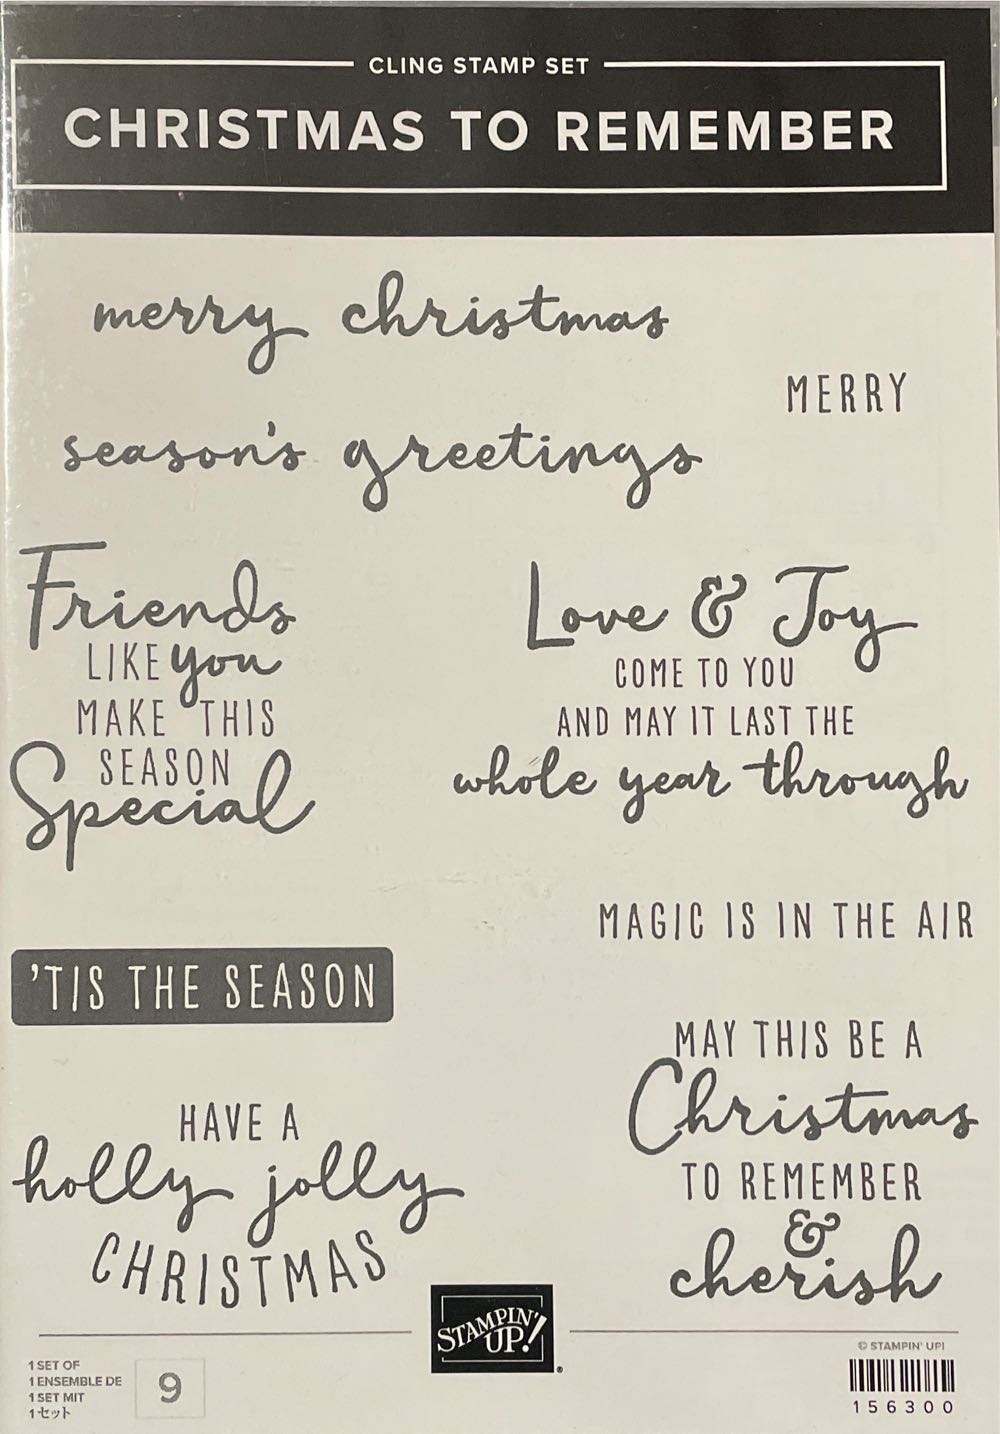 CLING STAMP SET
CHRISTMAS TO REMEMBER
merry christmas
MERRY
season's greetings
Friends
LIKE you
MAKE THIS
SEASON
Special
Love & Joy
COME TO YOU
AND MAY IT LAST THE
whole year through
MAGIC IS IN THE AIR
'TIS THE SEASON
MAY THIS BE A
Christmas
TO REMEMBER
&
cherish
HAVE A
holly jolly
CHRISTMAS
STAMPIN'
UP!
®
1 SET OF
1 ENSEMBLE DE
1 SET MIT
1セット
9
© STAMPIN' UP!
156300